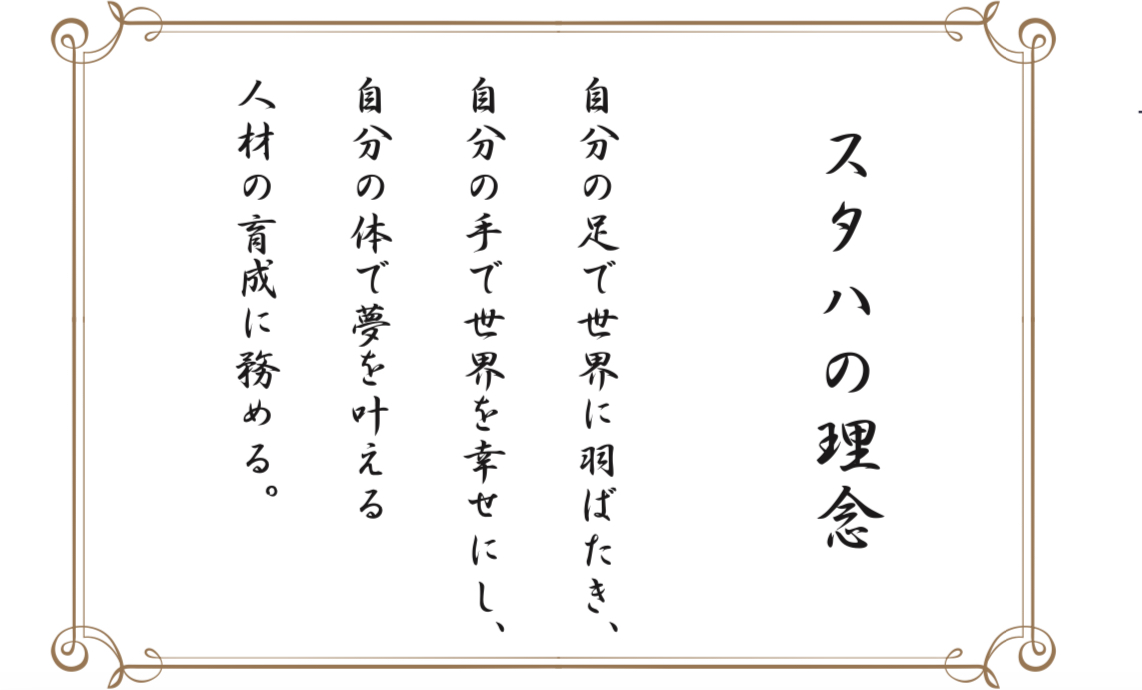 スタハの理念
自分の足で世界に羽ばたき、
自分の手で世界を幸せにし、
自分の体で夢を叶える
人材の育成に務める。